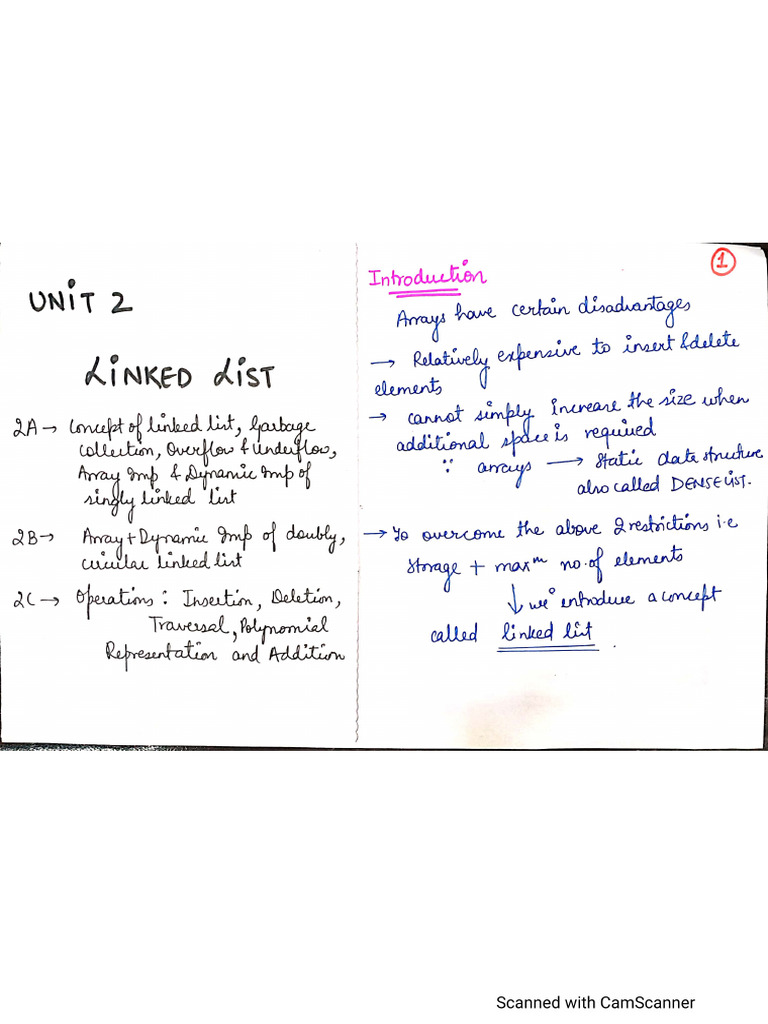 UNIT 2
LINKED LIST
2A → Concept of linked list, Garbage
collection, Overflow & Underflow,
Array Imp & Dynamic Imp of
singly linked list
2B → Array + Dynamic Imp of doubly,
circular linked list
2C → Operations: Insertion, Deletion,
Traversal, Polynomial
Representation and Addition
1
Introduction
Arrays have certain disadvantages
→ Relatively expensive to insert & delete
elements
→ cannot simply increase the size when
additional space is required
∵ arrays → static data structure
also called DENSE LIST.
→ To overcome the above 2 restrictions i.e
storage + max^m no. of elements
↓ we introduce a concept
called linked list.
Scanned with CamScanner